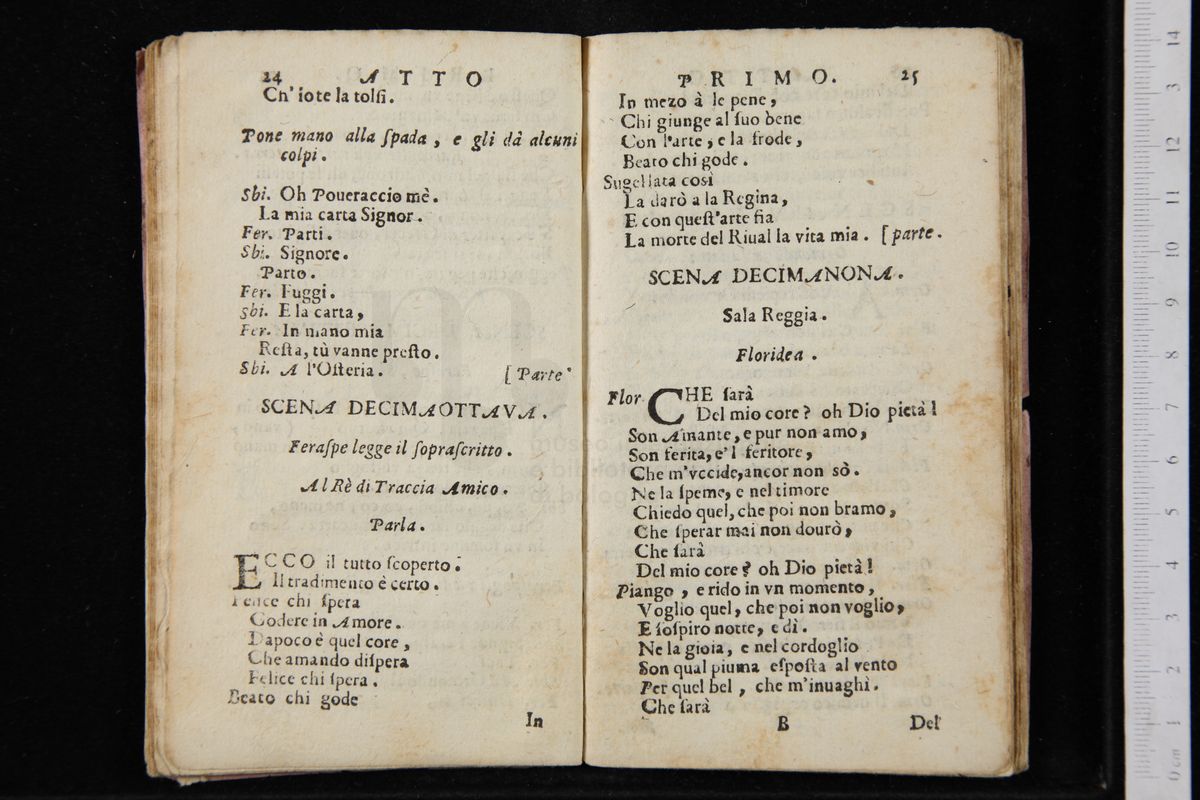 24 ATTO
Ch' io te la tolsi.
Pone mano alla ſpada, e gli dà alcuni
colpi.
Sbi. Oh Poueraccio mè.
La mia carta Signor.
Fer. Parti.
Sbi. Signore.
Parto.
Fer. Fuggi.
Sbi. E la carta,
Fer. In mano mia
Reſta, tù vanne preſto.
Sbi. A l'Oſteria. [Parte
SCENA DECIMAOTTAVA.
Feraſpe legge il ſopraſcritto.
Al Rè di Traccia Amico.
Parla.
ECCO il tutto ſcoperto.
Il tradimento è certo.
Felice chi ſpera
Godere in Amore.
Dapoco è quel core,
Che amando diſpera
Felice chi ſpera.
Beato chi gode
In
PRIMO. 25
In mezo à le pene,
Chi giunge al ſuo bene
Con l'arte, e la frode,
Beato chi gode.
Sugellata così
La darò a la Regina,
E con queſt'arte fia
La morte del Riual la vita mia. [parte.
SCENA DECIMANONA.
Sala Reggia.
Floridea.
Flor CHE ſarà
Del mio core? oh Dio pietà!
Son Amante, e pur non amo,
Son ferita, e'l feritore,
Che m'vccide, ancor non sò.
Ne la ſpeme, e nel timore
Chiedo quel, che poi non bramo,
Che ſperar mai non dourò,
Che ſarà
Del mio core? oh Dio pietà!
Piango, e rido in vn momento,
Voglio quel, che poi non voglio,
E ſoſpiro notte, e dì.
Ne la gioia, e nel cordoglio
Son qual piuma eſpoſta al vento
Per quel bel, che m'inuaghì.
Che ſarà
B Del
14
13
12
11
10
9
8
7
6
5
4
3
2
1
0 cm